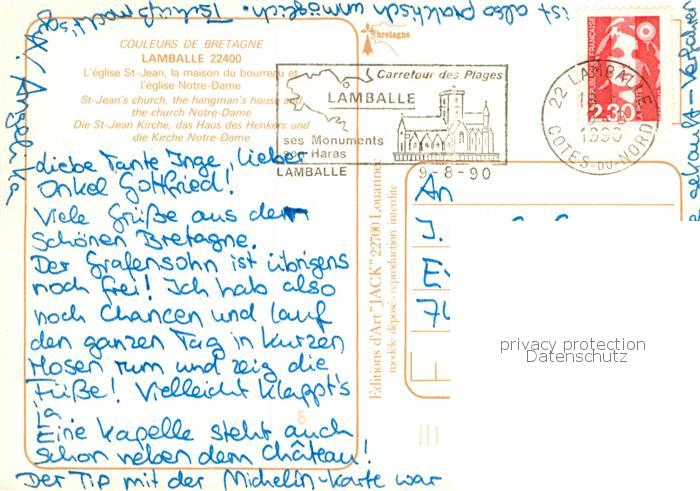 COULEURS DE BRETAGNE
LAMBALLE 22400
L'église St-Jean, la maison du bourreau et
l'église Notre-Dame
St-Jean's church, the hangman's house and
the church Notre-Dame
Die St-Jean Kirche, das Haus des Henkers und
die Kirche Notre-Dame
bretagne
Carrefour des Plages
LAMBALLE
ses Monuments
son Haras
LAMBALLE
9-8-90
REPUBLIQUE FRANÇAISE
LA POSTE
2,30
22 LAMBALLE
1990
COTES-DU-NORD
Liebe Tante Inge, lieber
Onkel Gottfried!
Viele Grüße aus der
schönen Bretagne.
Der Grafensohn ist übrigens
noch frei! Ich hab also
noch Chancen und lauf
den ganzen Tag in kurzen
Hosen rum und zeig die
Füße! Vielleicht klappt's
ja
Eine Kapelle steht auch
schon neben dem Château!
Der Tip mit der Michelin-Karte war
Verfahren
ist also praktisch unmöglich. Tschüß
Angelika
Editions d'Art "JACK" 22700 Louannec
modèle déposé - reproduction interdite
An
J.
E
F
privacy protection
Datenschutz